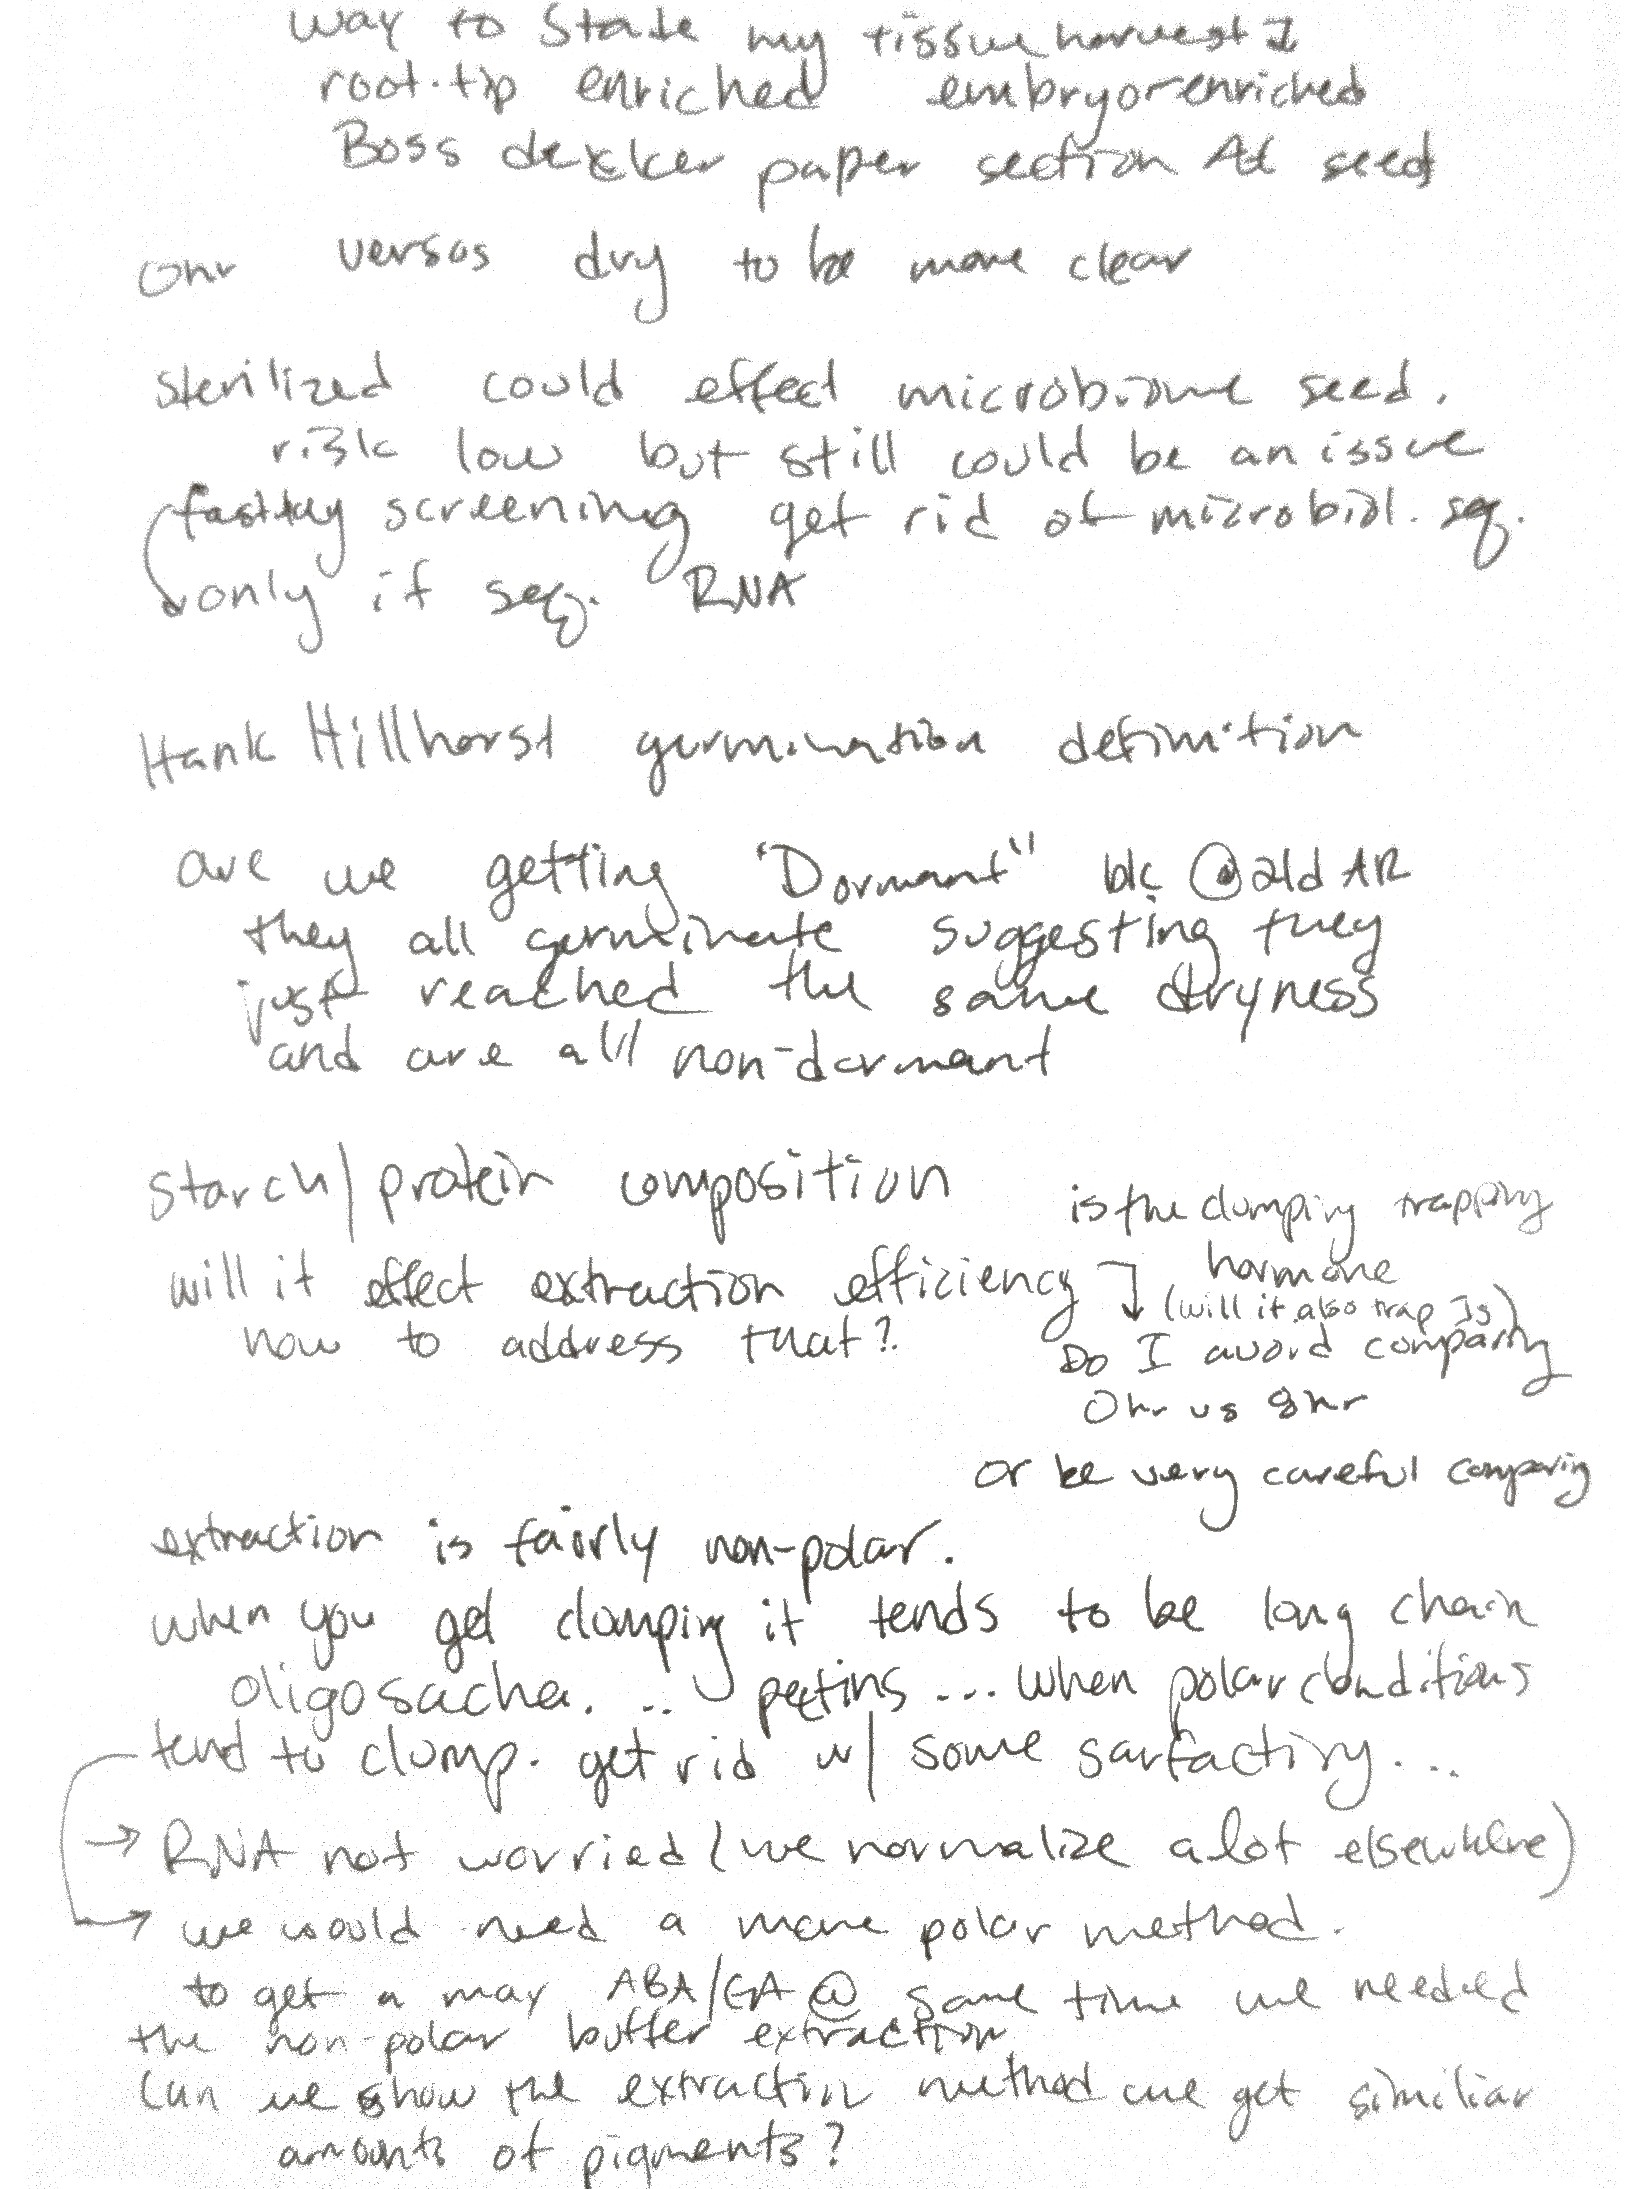 way to state my tissue harvest I
root-tip enriched embryo-enriched
Boss dekker paper section At seed
0hr versos dry to be more clear
sterilized could effect microbiome seed.
risk low but still could be an issue
screening get rid of microbial. seq.
only if seq. RNA
Hank Hillhorst germination definition
are we getting "Dormant" b/c @ 21d AR
they all germinate suggesting they
just reached the same dryness
and are all non-dormant
starch/protein composition
will it effect extraction efficiency
how to address that?
is the clumping trapping
hormone
(will it also trap Is)
Do I avoid comparing
0hr vs 8hr
or be very careful comparing
extraction is fairly non-polar.
when you get clumping it tends to be long chain
oligosacha... pectins... when polar conditions
tend to clump. get rid w/ some surfacting...
→ RNA not worried (we normalize alot elsewhere)
→ we would need a more polar method.
to get a max ABA/GA @ same time we needed
the non-polar buffer extraction
Can we show the extraction method we get similiar
amounts of pigments?